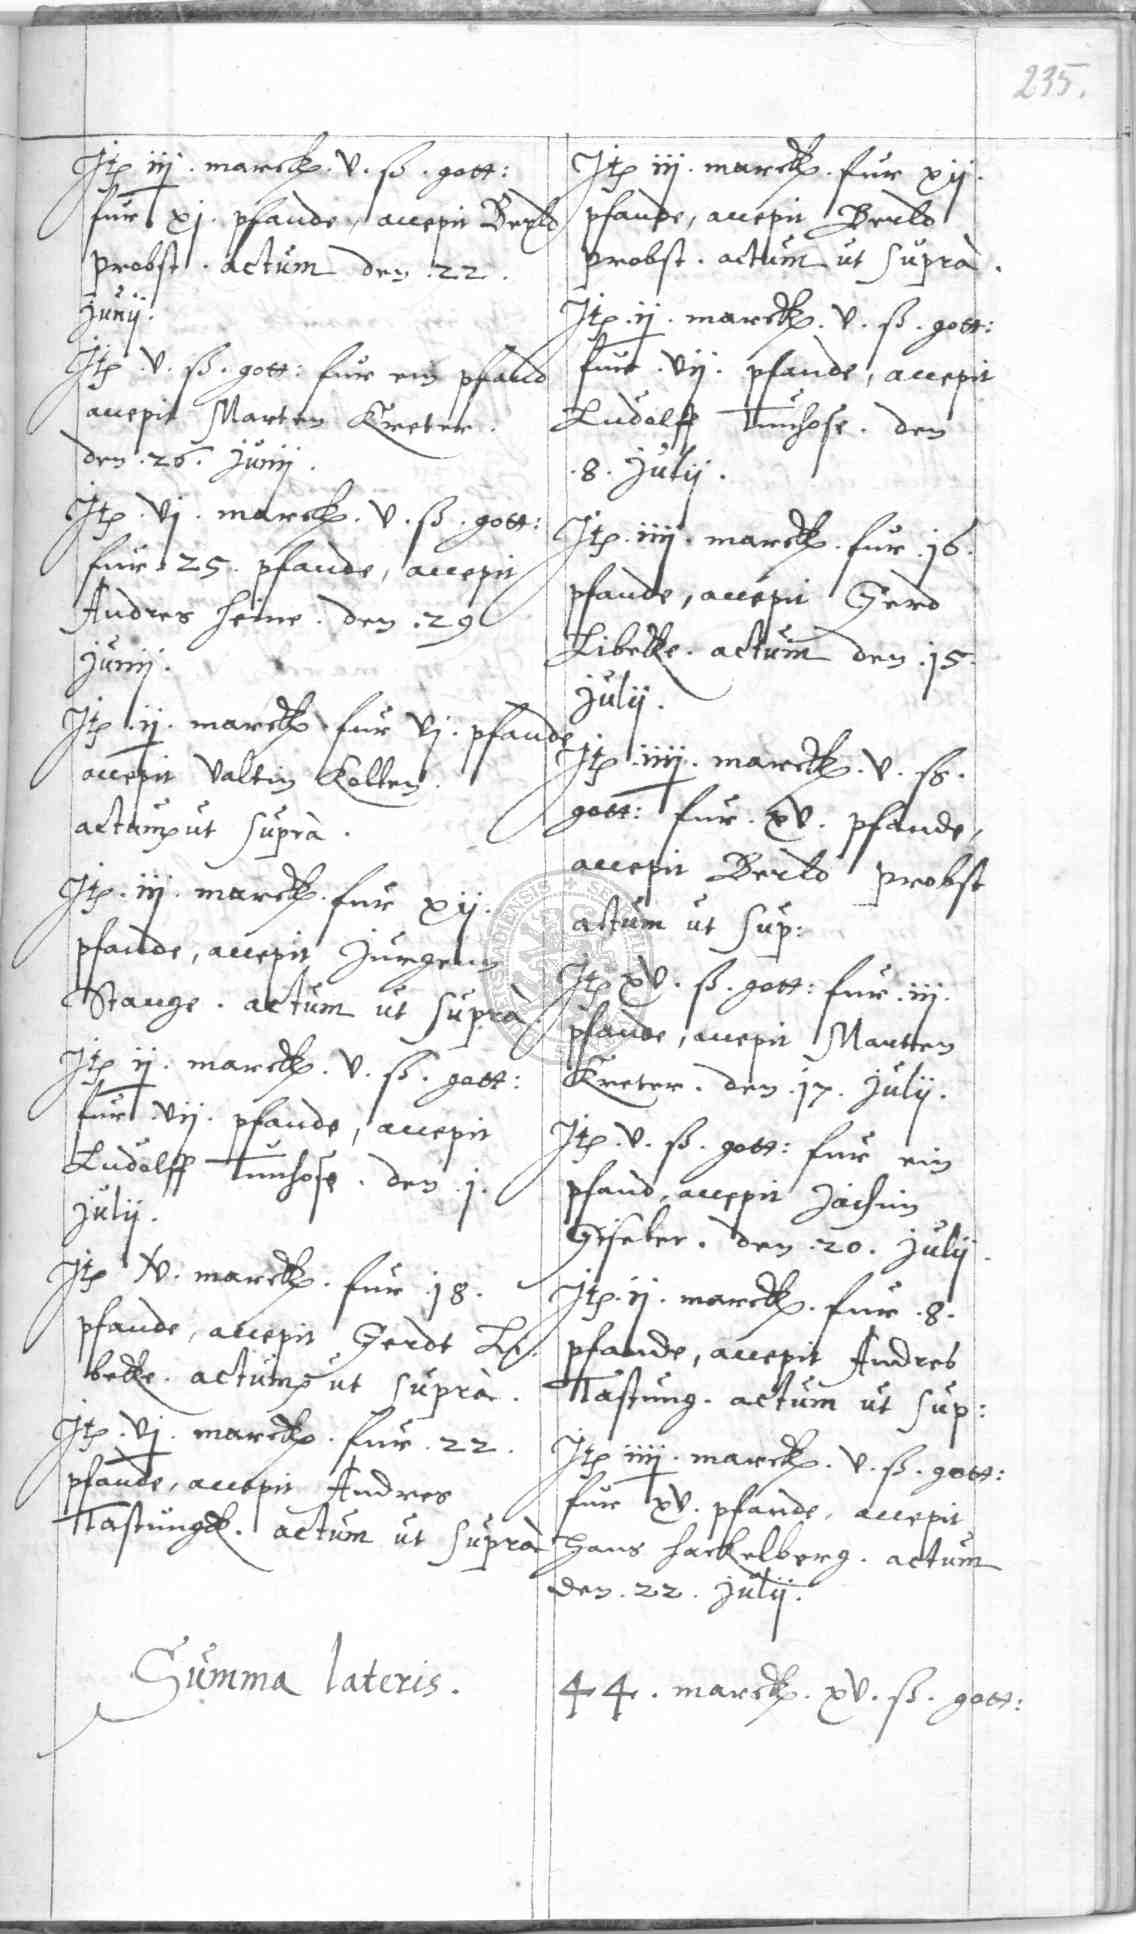 235.
Itp iij . marck . v . ß . gott:
fur xj . pfande, accepit Berld
Probst . actum den .22.
Junij.
Itp .v. ß. gott: fur ein pfand
accepit Marten Kreter.
den .26. Junij.
Itp .vj. marck . v . ß . gott:
fur .25. pfande, accepit
Andres Heine . den .29
Junij.
Itp .ij. marck fur vj . pfande
accepit Valtin Kolten.
actum ut suprà.
Itp .iij. marck . fur xij.
pfande, accepit Jurgenn
Stange . actum ut suprà.
Itp ij . marck . v . ß . gott:
fur .vij. pfande, accepit
Ludolff Tunhose . den .j.
Julij.
Itp marck . fur .18.
pfande, accepit Gerdt Li-
beke . actum ut suprà.
Itp .vj. marck . fur .22.
pfande, accepit Andres
Tastungk . actum ut suprà
Itp iij . marck . fur xij.
pfande, accepit Berld
Probst . actum ut suprà.
Itp .ij. marck . v . ß . gott:
fur .vij. pfande, accepit
Ludolff Tunhose . den
.8. Julij.
Itp .iiij. marck . fur .16.
pfande, accepit Gerd
Libeke . actum den .15.
Julij.
Itp .iiij. marck . v . ß.
gott: fur . xv . pfande,
accepit Berld Probst
actum ut sup:
Itp xv . ß . gott: fur .iij.
pfande, accepit Martten
Kreter . den .17. Julij.
Itp .v. ß . gott: fur ein
pfand, accepit Jachim
Giseler . den .20. Julij.
Itp .ij. marck . fur .8.
pfande, accepit Andres
Tastung . actum ut sup:
Itp iiij . marck . v . ß . gott:
fur xv . pfande, accepit
Hans Hackelberg . actum
den .22. Julij.
Summa lateris. 44 . marck . xv . ß . gott: